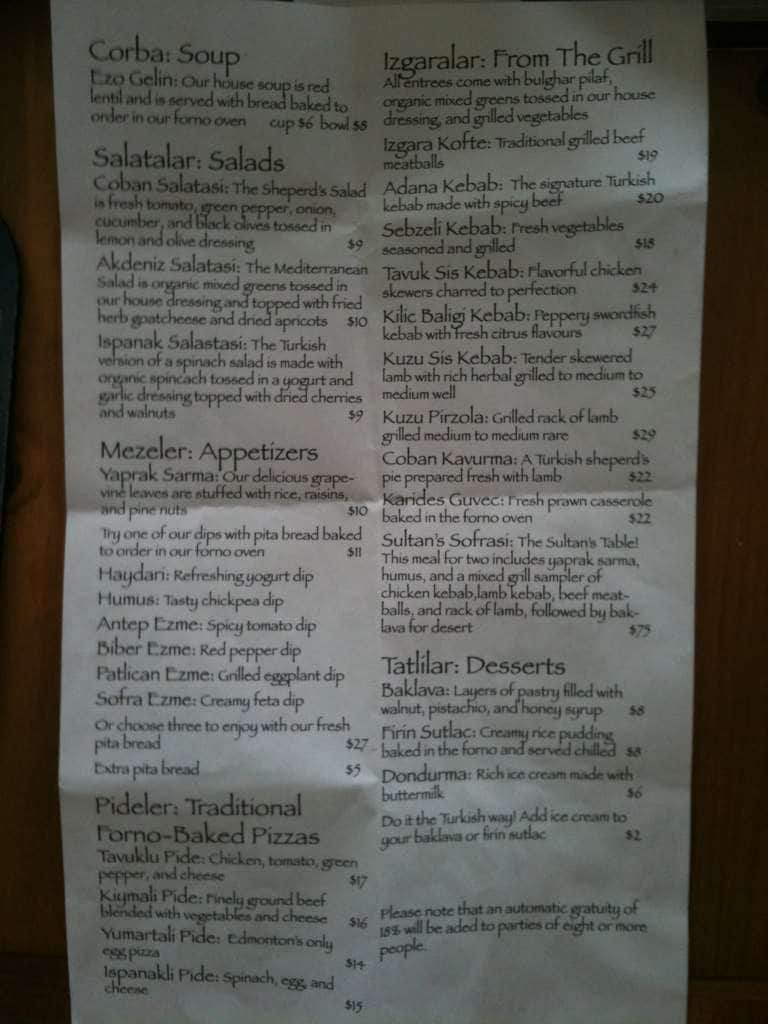 Corba: Soup
Ezo Gelin: Our house soup is red
lentil and is served with bread baked to
order in our forno oven cup $6 bowl $8
Salatalar: Salads
Coban Salatasi: The Sheperd's Salad
is fresh tomato, green pepper, onion,
cucumber, and black olives tossed in
lemon and olive dressing $9
Akdeniz Salatasi: The Mediterranean
Salad is organic mixed greens tossed in
our house dressing and topped with fried
herb goatcheese and dried apricots $10
Ispanak Salastasi: The Turkish
version of a spinach salad is made with
organic spincach tossed in a yogurt and
garlic dressing topped with dried cherries
and walnuts $9
Mezeler: Appetizers
Yaprak Sarma: Our delicious grape-
vine leaves are stuffed with rice, raisins,
and pine nuts $10
Try one of our dips with pita bread baked
to order in our forno oven $11
Haydari: Refreshing yogurt dip
Humus: Tasty chickpea dip
Antep Ezme: Spicy tomato dip
Biber Ezme: Red pepper dip
Patlican Ezme: Grilled eggplant dip
Sofra Ezme: Creamy feta dip
Or choose three to enjoy with our fresh
pita bread $27
Extra pita bread $5
Pideler: Traditional
Forno-Baked Pizzas
Tavuklu Pide: Chicken, tomato, green
pepper, and cheese $17
Kiymali Pide: Finely ground beef
blended with vegetables and cheese $16
Yumartali Pide: Edmonton's only
egg pizza $14
Ispanakli Pide: Spinach, egg, and
cheese $15
Izgaralar: From The Grill
All entrees come with bulghar pilaf,
organic mixed greens tossed in our house
dressing, and grilled vegetables
Izgara Kofte: Traditional grilled beef
meatballs $19
Adana Kebab: The signature Turkish
kebab made with spicy beef $20
Sebzeli Kebab: Fresh vegetables
seasoned and grilled $18
Tavuk Sis Kebab: Flavorful chicken
skewers charred to perfection $24
Kilic Baligi Kebab: Peppery swordfish
kebab with fresh citrus flavours $27
Kuzu Sis Kebab: Tender skewered
lamb with rich herbal grilled to medium to
medium well $25
Kuzu Pirzola: Grilled rack of lamb
grilled medium to medium rare $29
Coban Kavurma: A Turkish sheperd's
pie prepared fresh with lamb $22
Karides Guvec: Fresh prawn casserole
baked in the forno oven $22
Sultan's Sofrasi: The Sultan's Table!
This meal for two includes yaprak sarma,
humus, and a mixed grill sampler of
chicken kebab,lamb kebab, beef meat-
balls, and rack of lamb, followed by bak-
lava for desert $75
Tatlilar: Desserts
Baklava: Layers of pastry filled with
walnut, pistachio, and honey syrup $8
Firin Sutlac: Creamy rice pudding
baked in the forno and served chilled $8
Dondurma: Rich ice cream made with
buttermilk $6
Do it the Turkish way! Add ice cream to
your baklava or firin sutlac $2
Please note that an automatic gratuity of
18% will be aded to parties of eight or more
people.